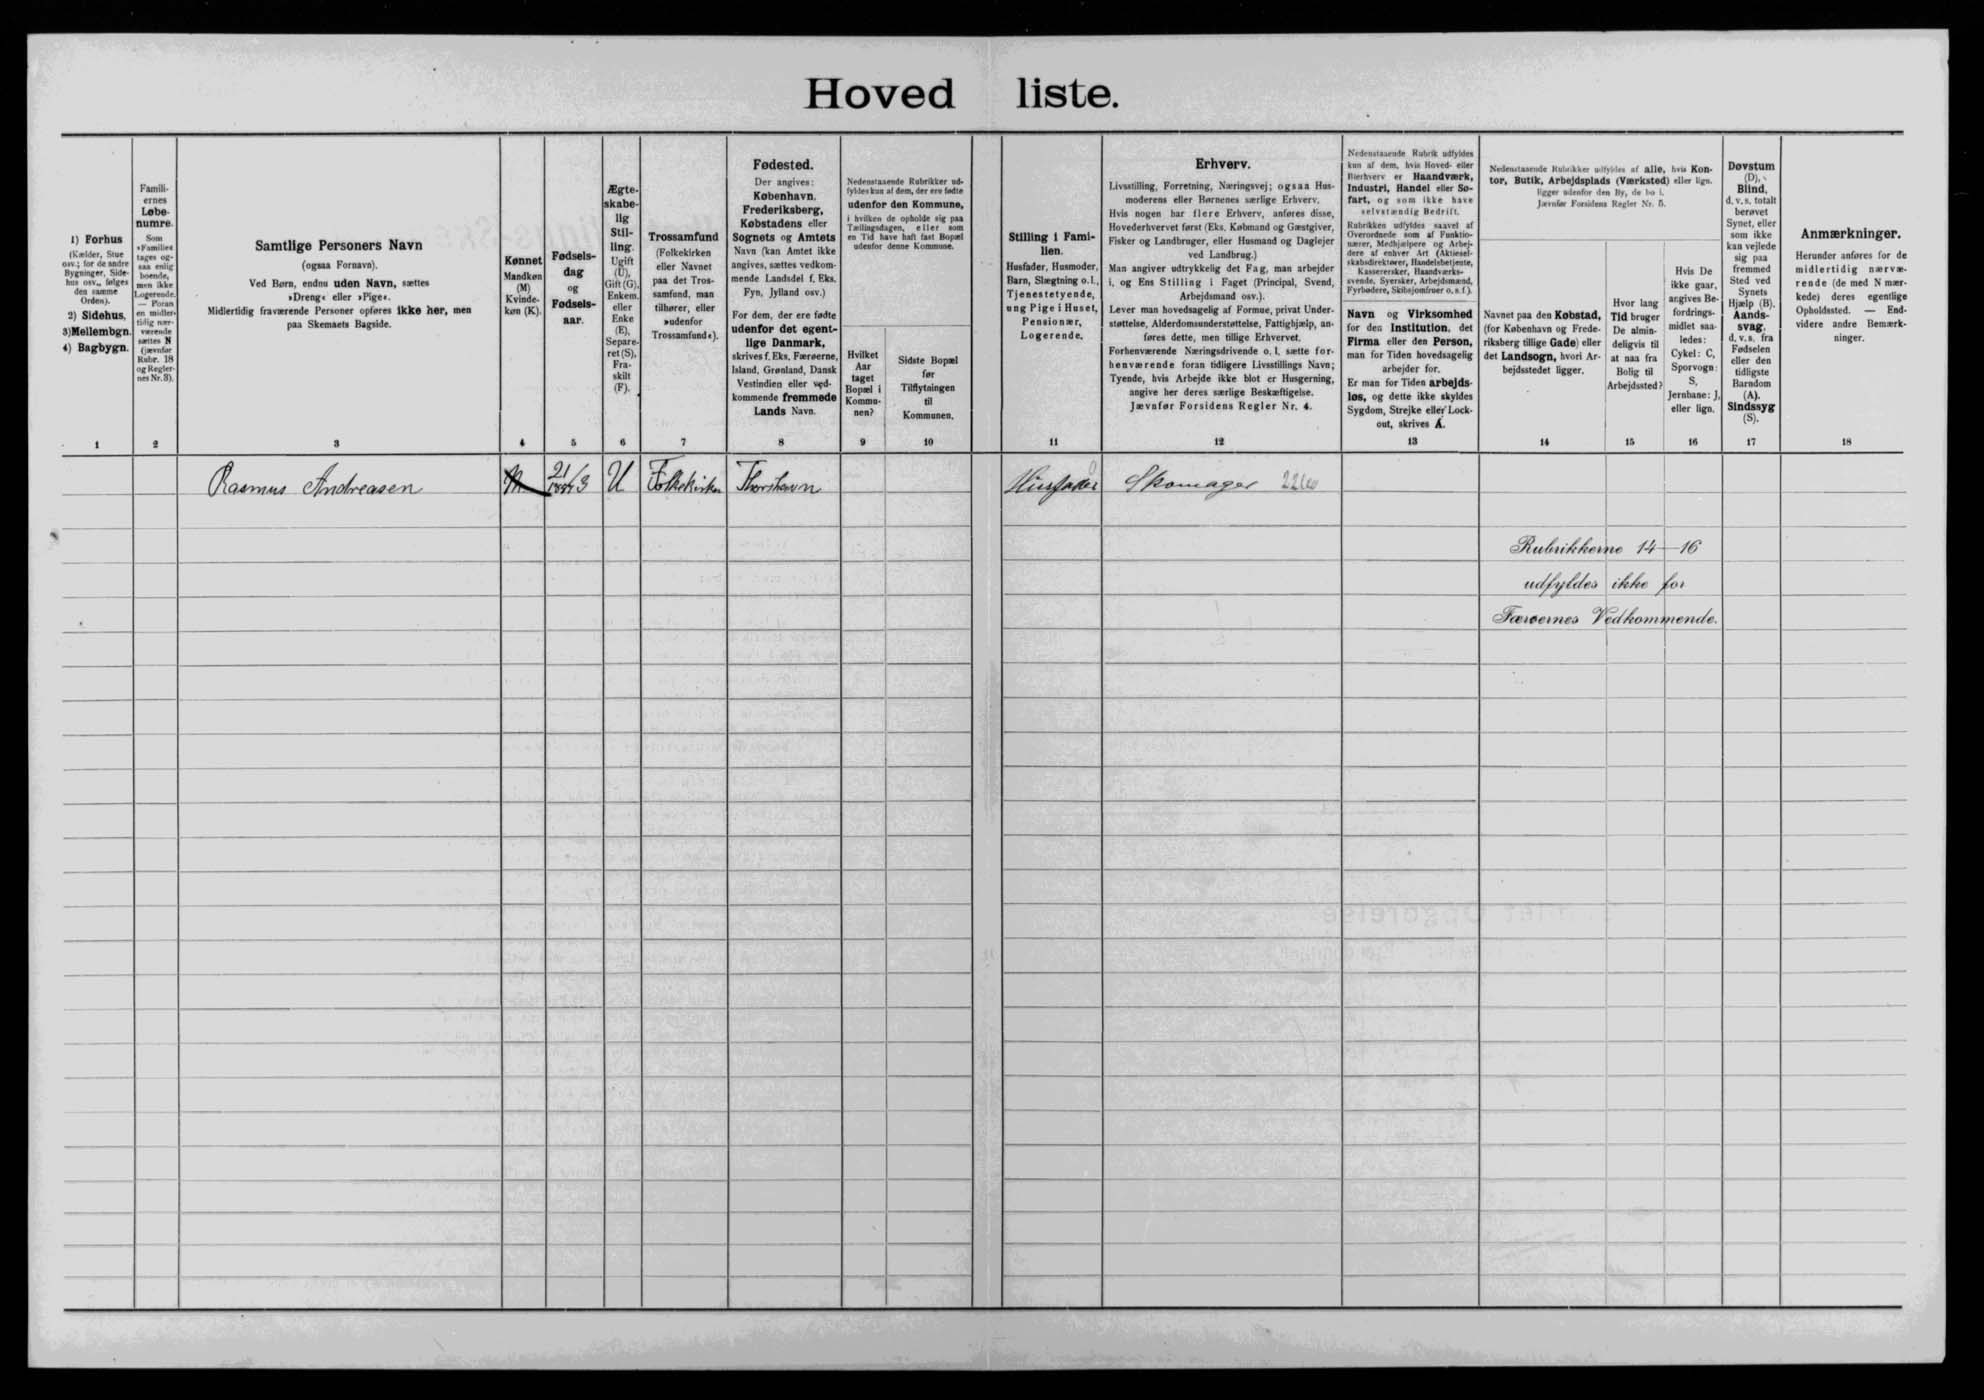 Hoved liste.
1) Forhus
(Kælder, Stue
osv.; for de andre
Bygninger, Side-
hus osv., følges
den samme
Orden).
2) Sidehus,
3) Mellembgn.
4) Bagbygn.
1
Famili-
ernes
Løbe-
numre.
Som
»Familie«
tages og-
saa enlig
boende,
men ikke
Logerende.
— Foran
en midler-
tidig nær-
værende
sættes N
(jævnfør
Rubr. 18
og Regler-
nes Nr. 3).
2
Samtlige Personers Navn
(ogsaa Fornavn).
Ved Børn, endnu uden Navn, sættes
»Dreng« eller »Pige«.
Midlertidig fraværende Personer opføres ikke her, men
paa Skemaets Bagside.
3
Kønnet
Mandkøn
(M)
Kvinde-
køn (K).
4
Fødsels-
dag
og
Fødsels-
aar.
5
Ægte-
skabe-
lig
Stil-
ling.
Ugift
(U),
Gift (G),
Enkem.
eller
Enke
(E),
Separe-
ret (S),
Fra-
skilt
(F).
6
Trossamfund
(Folkekirken
eller Navnet
paa det Tros-
samfund, man
tilhører, eller
»udenfor
Trossamfund«).
7
Fødested.
Der angives:
København,
Frederiksberg,
Købstadens eller
Sognets og Amtets
Navn (kan Amtet ikke
angives, sættes vedkom-
mende Landsdel f. Eks.
Fyn, Jylland osv.)
For dem, der ere fødte
udenfor det egent-
lige Danmark,
skrives f. Eks. Færøerne,
Island, Grønland, Dansk
Vestindien eller ved-
kommende fremmede
Lands Navn.
8
Nedenstaaende Rubrikker ud-
fyldes kun af dem, der ere fødte
udenfor den Kommune,
i hvilken de opholde sig paa
Tællingsdagen, eller som
en Tid have haft fast Bopæl
udenfor denne Kommune.
Hvilket
Aar
taget
Bopæl i
Kommu-
nen?
9
Sidste Bopæl
før
Tilflytningen
til
Kommunen.
10
Stilling i Fami-
lien.
Husfader, Husmoder,
Barn, Slægtning o.l.,
Tjenestetyende,
ung Pige i Huset,
Pensionær,
Logerende.
11
Erhverv.
Livsstilling, Forretning, Næringsvej; ogsaa Hus-
moderens eller Børnenes særlige Erhverv.
Hvis nogen har flere Erhverv, anføres disse,
Hovederhvervet først (Eks. Købmand og Gæstgiver,
Fisker og Landbruger, eller Husmand og Daglejer
ved Landbrug.)
Man angiver udtrykkelig det Fag, man arbejder
i, og Ens Stilling i Faget (Principal, Svend,
Arbejdsmand osv.).
Lever man hovedsagelig af Formue, privat Under-
støttelse, Alderdomsunderstøttelse, Fattighjælp, an-
føres dette, men tillige Erhvervet.
Forhenværende Næringsdrivende o. l. sætte for-
henværende foran tidligere Livsstillings Navn;
Tyende, hvis Arbejde ikke blot er Husgerning,
angive her deres særlige Beskæftigelse.
Jævnfør Forsidens Regler Nr. 4.
12
Nedenstaaende Rubrik udfyldes
kun af dem, hvis Hoved- eller
Bierhverv er Haandværk,
Industri, Handel eller Sø-
fart, og som ikke have
selvstændig Bedrift.
Rubrikken udfyldes saavel af
Overordnede som af Funktio-
nærer, Medhjælpere og Arbej-
dere af enhver Art (Aktiesel-
skabsdirektører, Handelsbetjente,
Kasserersker, Haandværks-
svende, Syersker, Arbejdsmænd,
Fyrbødere, Skibsjomfruer o. s. f.).
Navn og Virksomhed
for den Institution, det
Firma eller den Person,
man for Tiden hovedsagelig
arbejder for.
Er man for Tiden arbejds-
løs, og dette ikke skyldes
Sygdom, Strejke eller Lock-
out, skrives A.
13
Nedenstaaende Rubrikker udfyldes af alle, hvis Kon-
tor, Butik, Arbejdsplads (Værksted) eller lign.
ligger udenfor den By, de bo i.
Jævnfør Forsidens Regler Nr. 5.
Navnet paa den Købstad,
(for København og Frede-
riksberg tillige Gade) eller
det Landsogn, hvori Ar-
bejdsstedet ligger.
14
Hvor lang
Tid bruger
De almin-
deligvis til
at naa fra
Bolig til
Arbejdssted?
15
Hvis De
ikke gaar,
angives Be-
fordrings-
midlet saa-
ledes:
Cykel: C,
Sporvogn:
S,
Jernbane: J,
eller lign.
16
Døvstum
(D),
Blind,
d. v. s. totalt
berøvet
Synet, eller
som ikke
kan vejlede
sig paa
fremmed
Sted ved
Synets
Hjælp (B).
Aands-
svag,
d. v. s. fra
Fødselen
eller den
tidligste
Barndom
(A).
Sindssyg
(S).
17
Anmærkninger.
Herunder anføres for de
midlertidig nærvæ-
rende (de med N mær-
kede) deres egentlige
Opholdssted. — End-
videre andre Bemærk-
ninger.
18
Rasmus Andreasen M 21/3 U Folkekirken Thorshavn Husfader Skomager
Rubrikkerne 14—16
udfyldes ikke for
Færøernes Vedkommende.